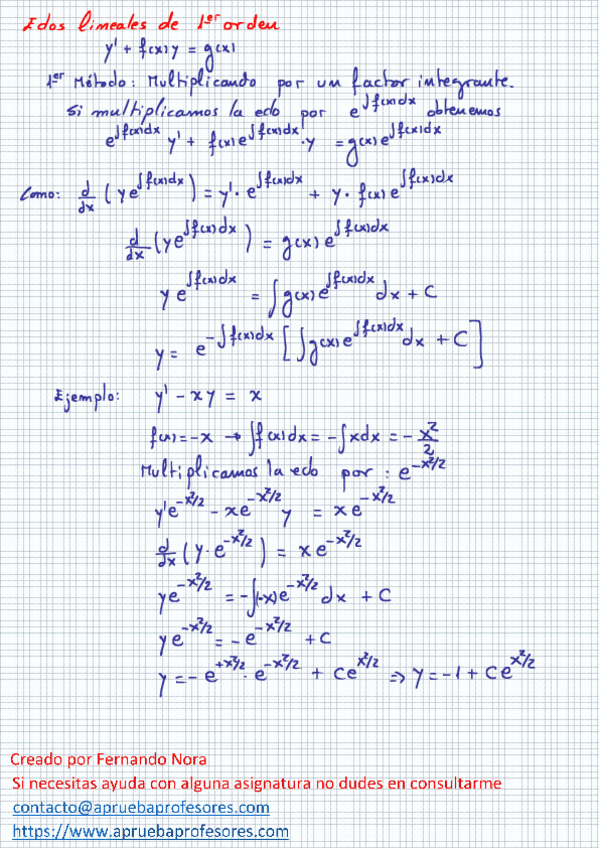 Edos lineales de 1er orden
y' + f(x) y = g(x)
1er Método: Multiplicando por un factor integrante.
Si multiplicamos la edo por e^{∫f(x)dx} obtenemos
e^{∫f(x)dx} y' + f(x) e^{∫f(x)dx} · y = g(x) e^{∫f(x)dx}
Como: d/dx (y e^{∫f(x)dx}) = y' · e^{∫f(x)dx} + y · f(x) e^{∫f(x)dx}
d/dx (y e^{∫f(x)dx}) = g(x) e^{∫f(x)dx}
y e^{∫f(x)dx} = ∫ g(x) e^{∫f(x)dx} dx + C
y = e^{-∫f(x)dx} [∫ g(x) e^{∫f(x)dx} dx + C]
Ejemplo: y' - xy = x
f(x) = -x → ∫f(x)dx = -∫xdx = - x²/2
Multiplicamos la edo por : e^{-x²/2}
y' e^{-x²/2} - x e^{-x²/2} y = x e^{-x²/2}
d/dx (y · e^{-x²/2}) = x e^{-x²/2}
y e^{-x²/2} = -∫(-x) e^{-x²/2} dx + C
y e^{-x²/2} = -e^{-x²/2} + C
y = - e^{+x²/2} · e^{-x²/2} + C e^{x²/2} ⇒ y = -1 + C e^{x²/2}
Creado por Fernando Nora
Si necesitas ayuda con alguna asignatura no dudes en consultarme
contacto@apruebaprofesores.com
https://www.apruebaprofesores.com